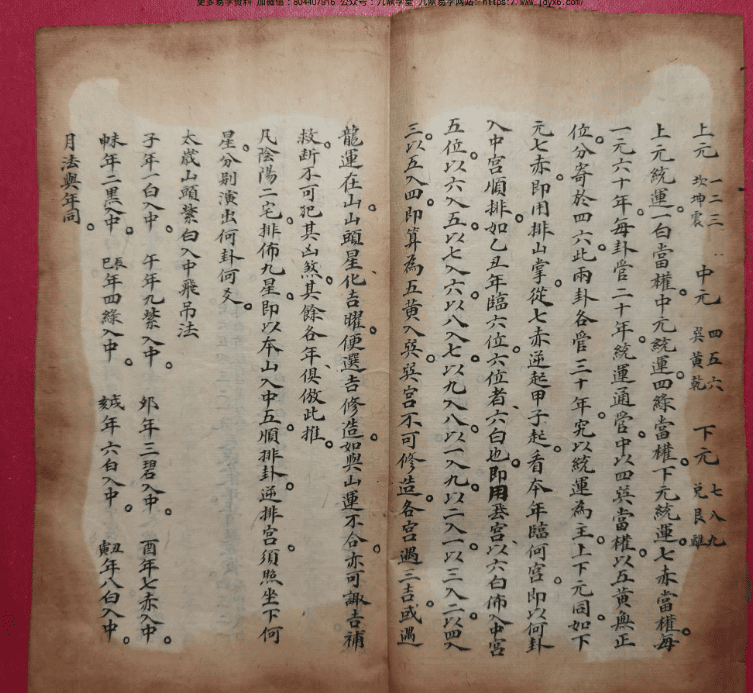 更多易学资料 加微信：804407916 公众号：九鼎学堂 九鼎易学网站：https://www.jdyx6.com/
上元 一二三 坎坤震 中元 四五六 巽黃乾 下元 七八九 兌艮離
上元統運一白當權。中元統運四綠當權。下元統運七赤當權。每
一元六十年。每卦管二十年。統運通管。中以四巽當權。以五黃無正
位。分寄於四六。此兩卦各管三十年。究以統運為主。上下元同。如下
元七赤。即用排山掌。從七赤逆起甲子起。看本年臨何宮。即以何卦
入中宮順排。如乙丑年臨六位。六位者六白也。即用宮以六白佈入中宮
五位。以六入五。以七入六。以八入七。以九入八。以一入九。以二入一。以三入二。以四入
三。以五入四。即算為五黃入巽。巽宮不可修造。各宮遇三吉。或遇
龍運在山。山頭星化吉曜。便選吉修造。如與山運不合。亦可諏吉補
救。斷不可犯其凶煞。其餘各年俱倣此推。
凡陰陽二宅排佈九星。即以本山入中五順排卦逆排宮。須照坐下何
星。分別演出何卦何爻。
太歲山頭紫白入中飛吊法
子年一白入中。 午年九紫入中。 卯年三碧入中。 酉年七赤入中。
未年二黑入中。 辰巳年四綠入中。 戌亥年六白入中。 丑寅年八白入中。
月法與年同。